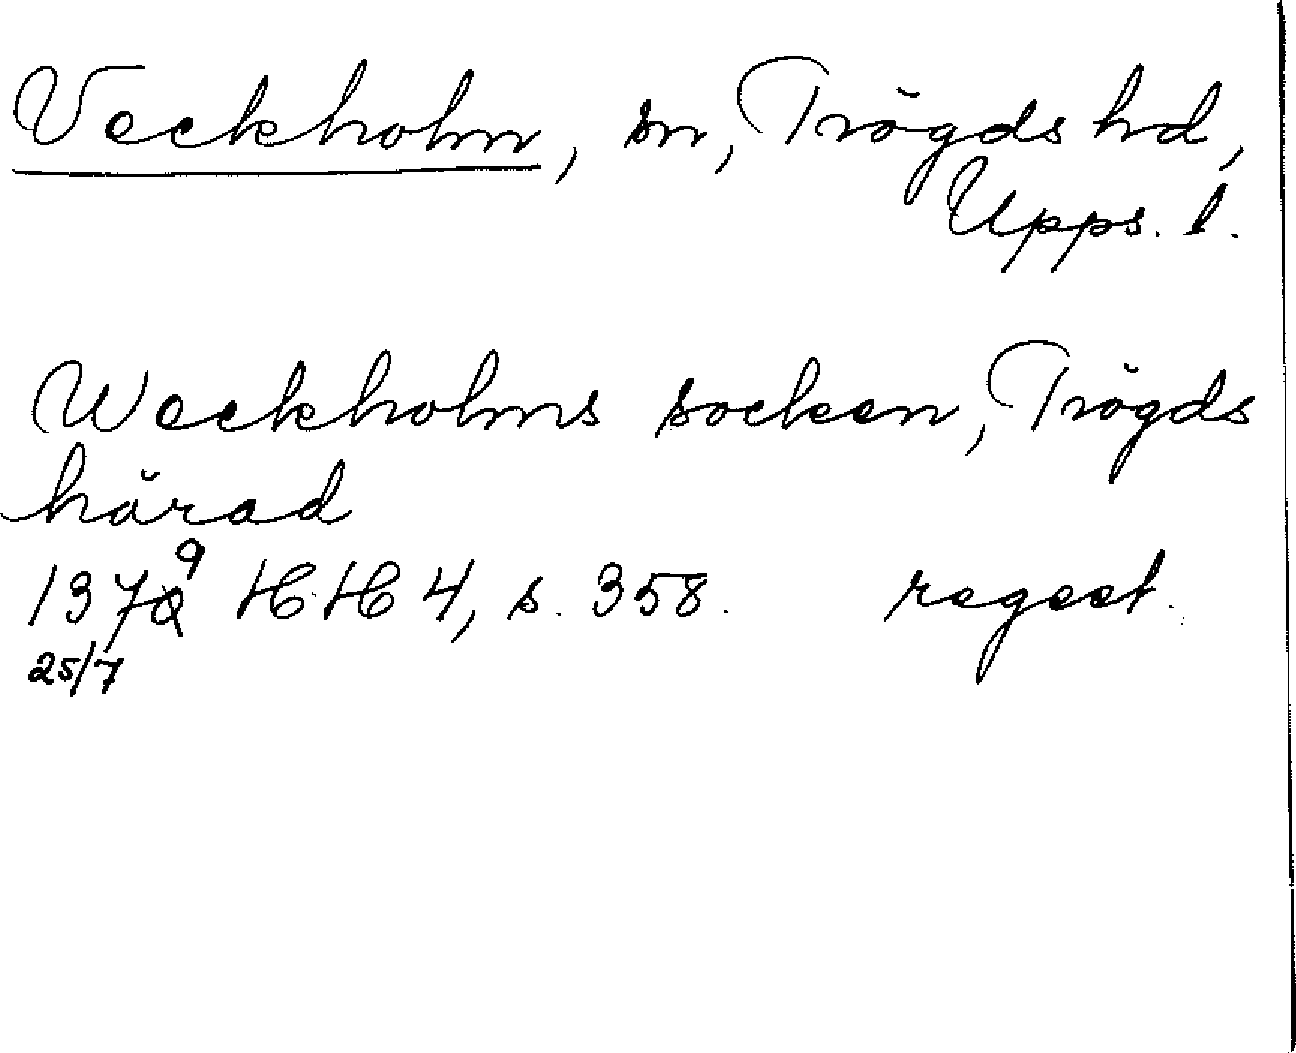 Veckholm, sn, Trögds hd,
Upps. l.
Weckholms socken, Trögds
härad
1379 HH 4, s. 358. regest.
25/7